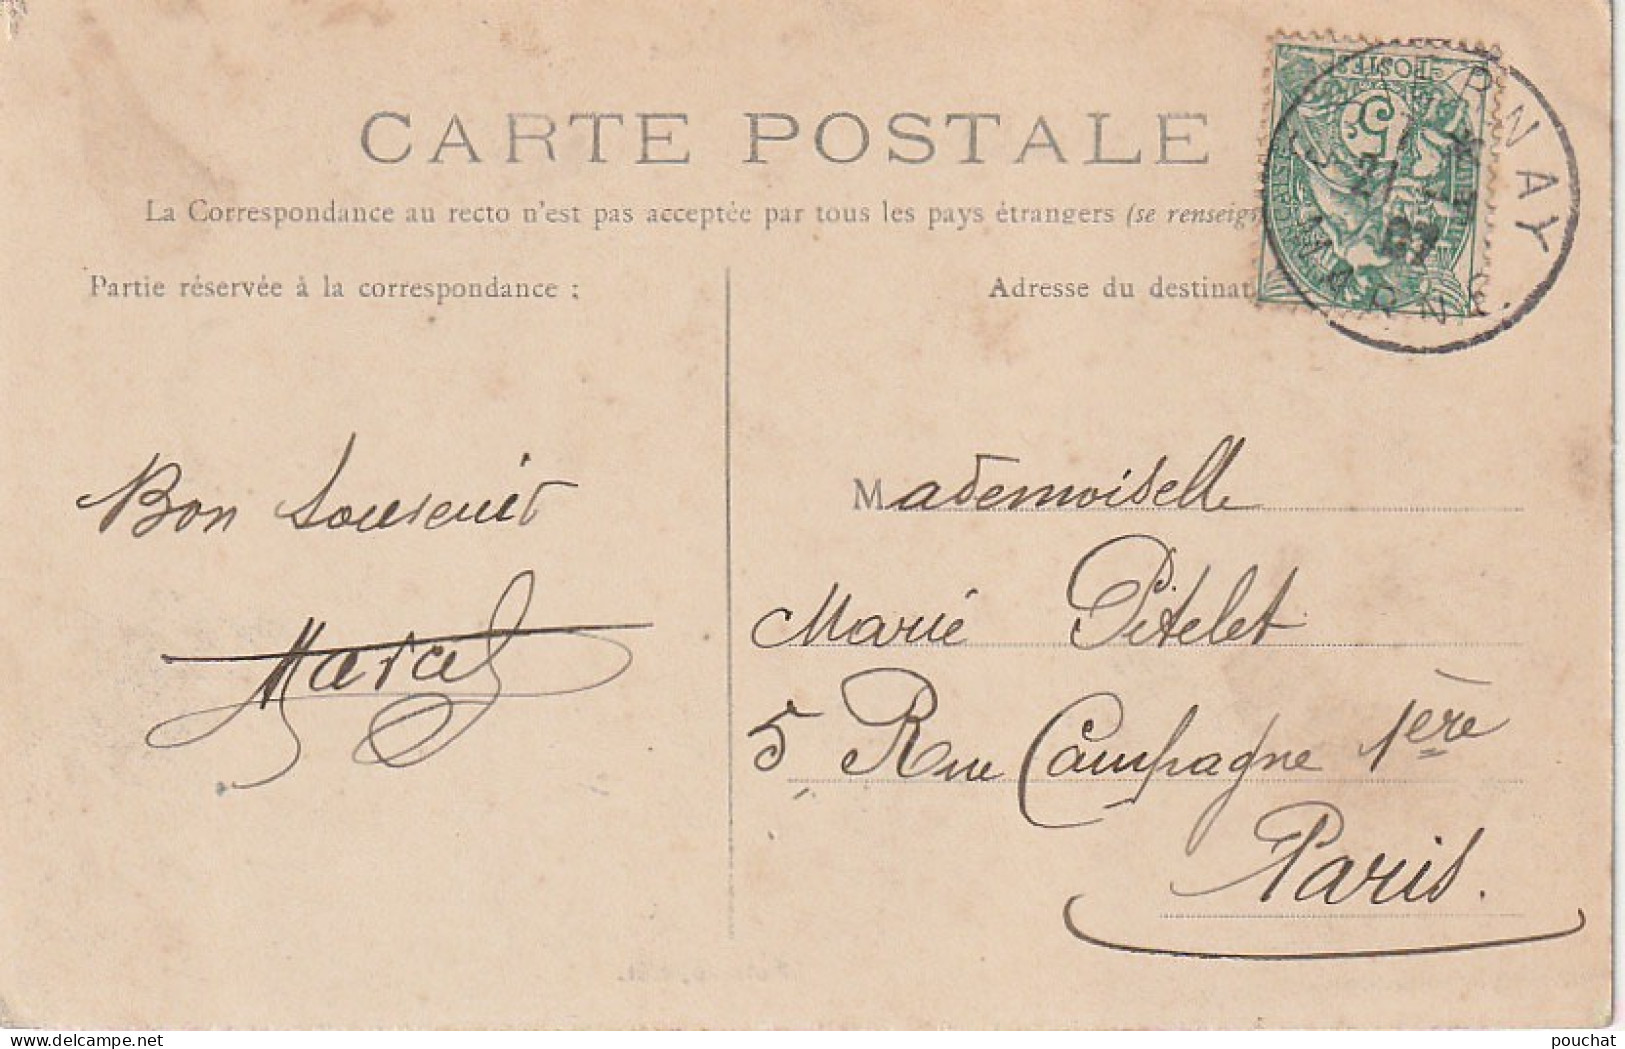 CARTE POSTALE
La Correspondance au recto n'est pas acceptée par tous les pays étrangers (se renseig
Partie réservée à la correspondance :
Adresse du destinat
POSTES
5
PNAY
21
07
MARNE
Bon Souvenir
Marcel
Mademoiselle
Marie Pitelet
5 Rue Campagne 1ère
Paris.
delcampe.net
pouchat